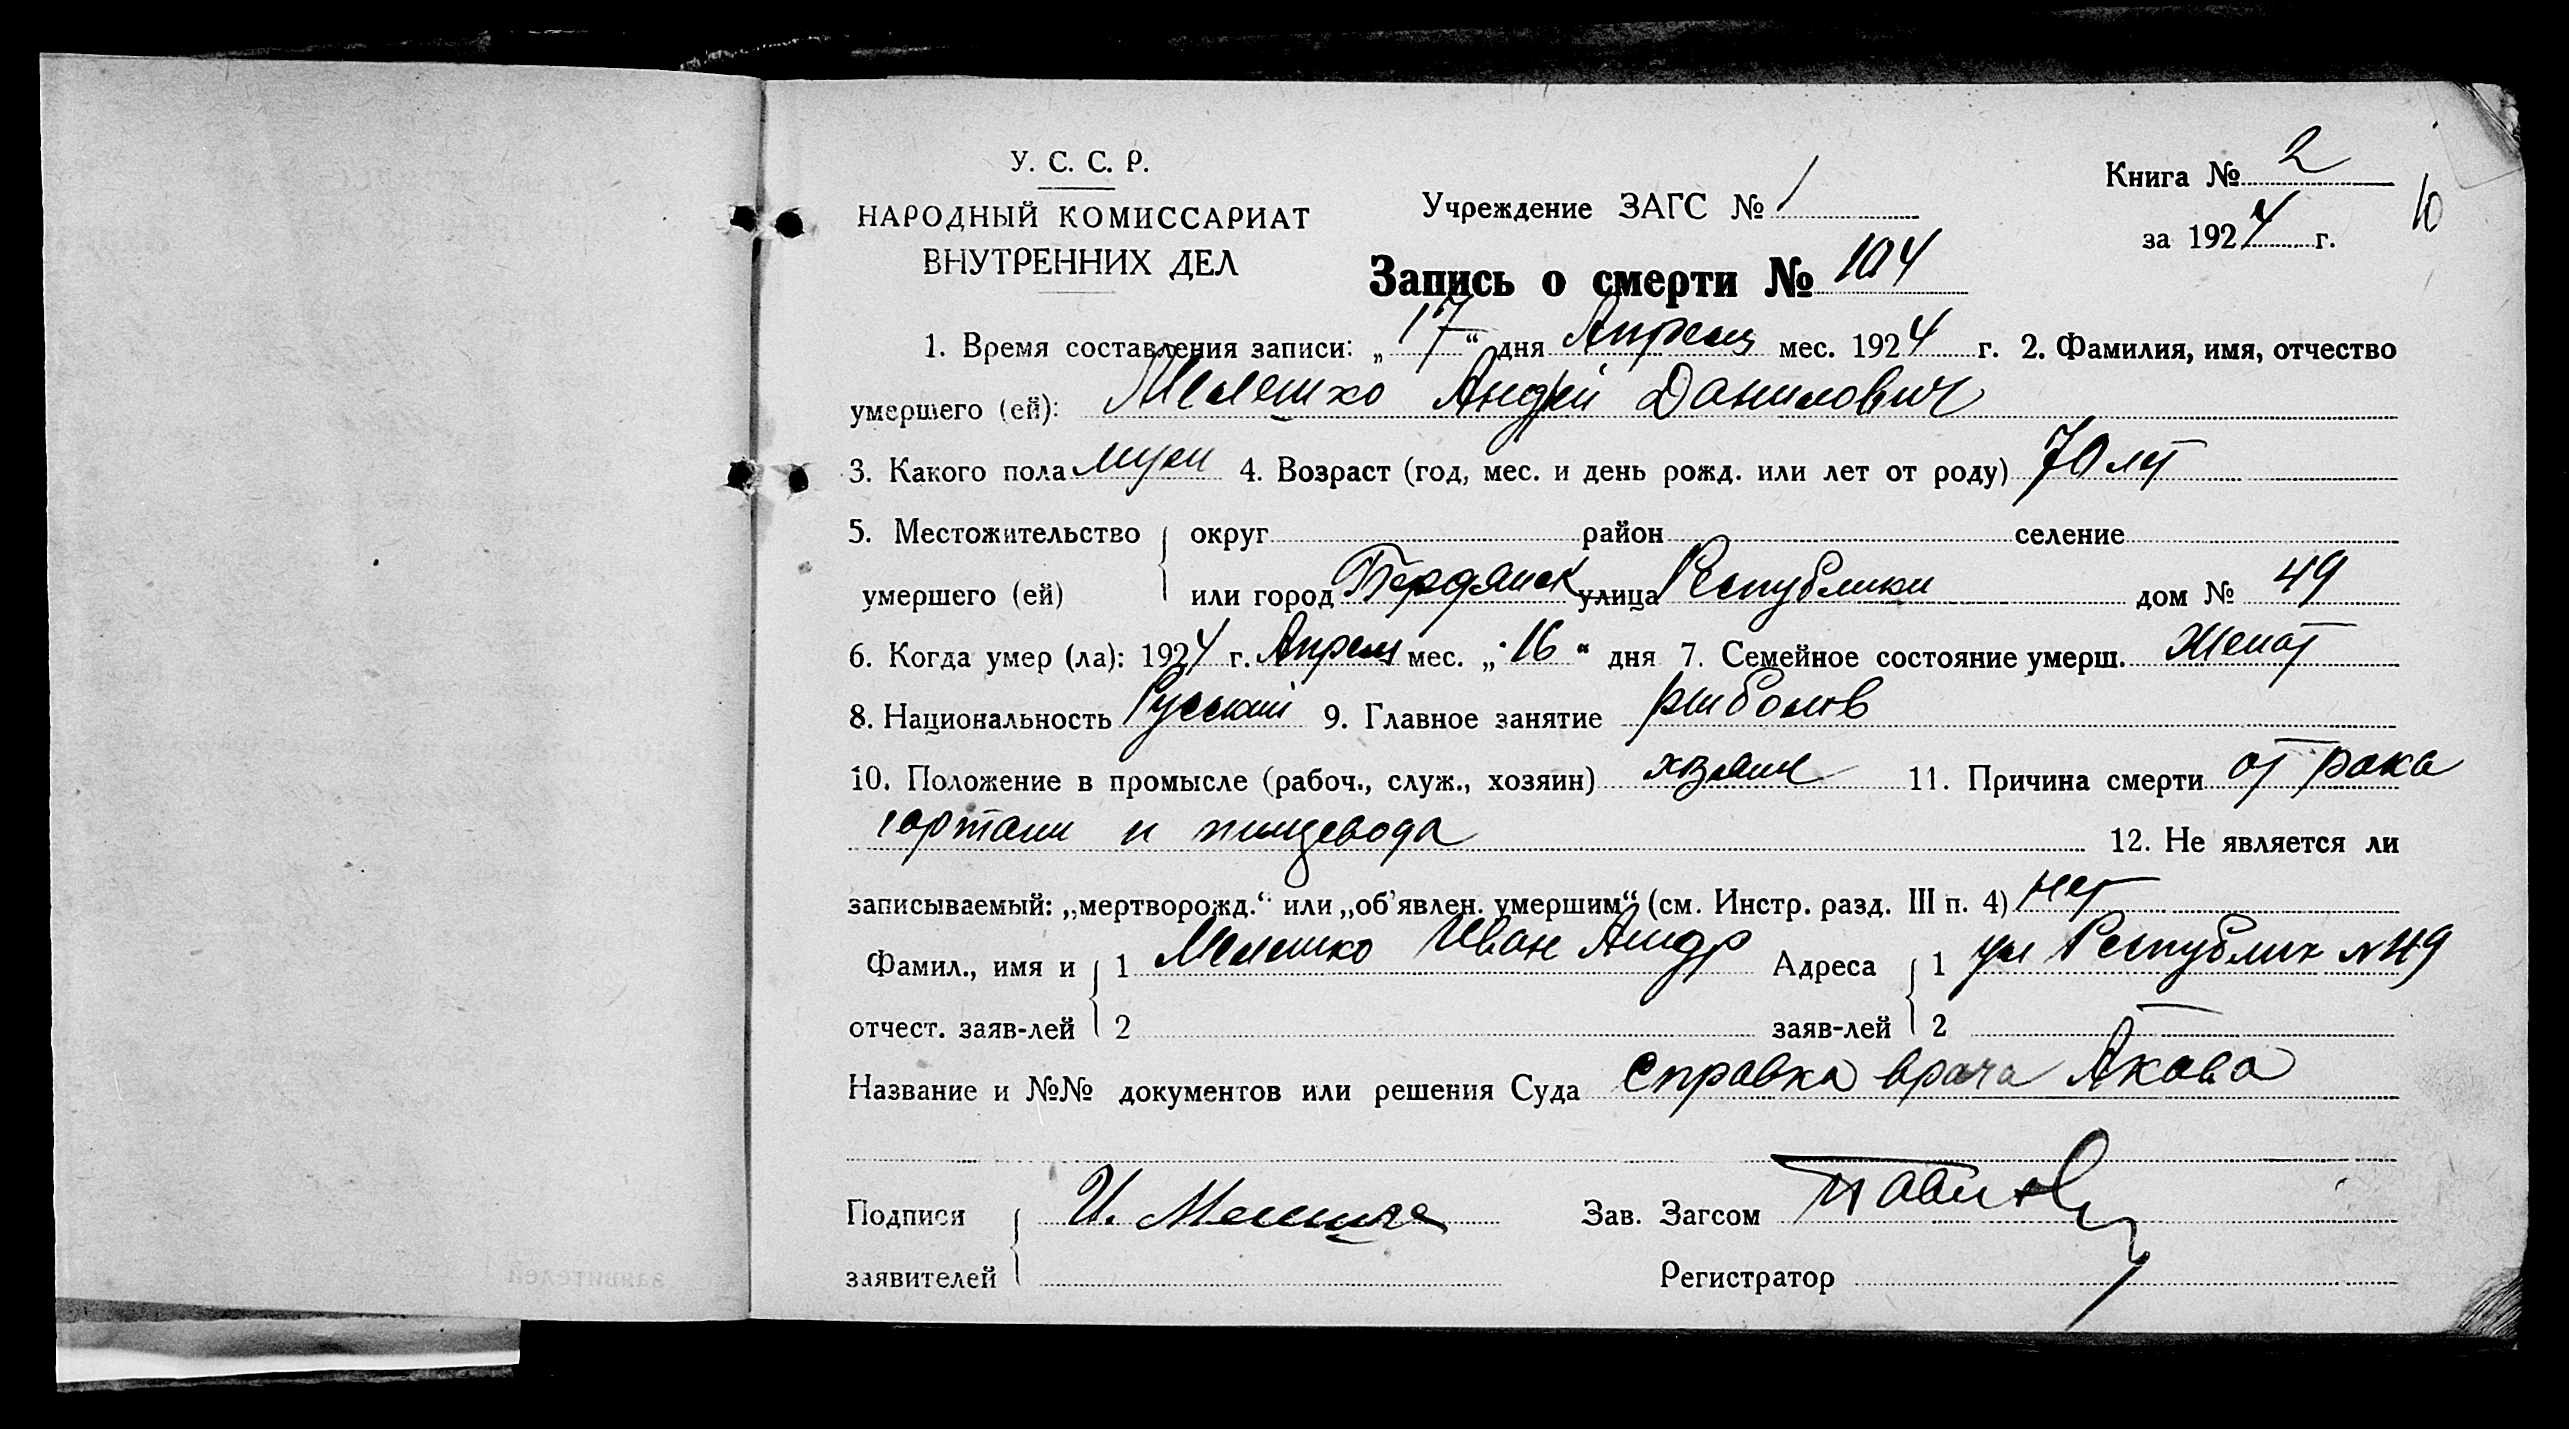 У. С. С. Р.
НАРОДНЫЙ КОМИССАРИАТ
ВНУТРЕННИХ ДЕЛ
Учреждение ЗАГС № 1
Книга № 2
за 1924 г.
10
Запись о смерти № 104
1. Время составления записи: „17“ дня Апреля мес. 1924 г. 2. Фамилия, имя, отчество
умершего (ей): Мелешко Андрей Данилович
3. Какого пола муж 4. Возраст (год, мес. и день рожд. или лет от роду) 70 лет
5. Местожительство округ район селение
умершего (ей) или город Бердянск улица Республики дом № 49
6. Когда умер (ла): 1924 г. Апреля мес. „16“ дня 7. Семейное состояние умерш. Женат
8. Национальность Русский 9. Главное занятие рыболов
10. Положение в промысле (рабоч., служ., хозяин) хозяин 11. Причина смерти от рака
гортани и пищевода 12. Не является ли
записываемый: „мертворожд.“ или „об'явлен. умершим“ (см. Инстр. разд. III п. 4) нет
Фамил., имя и 1 Мелешко Иван Андр Адреса 1 ул Республик № 49
отчест. заяв-лей 2 заяв-лей 2
Название и №№ документов или решения Суда справка врача
Подписи И. Мелешко Зав. Загсом
заявителей Регистратор